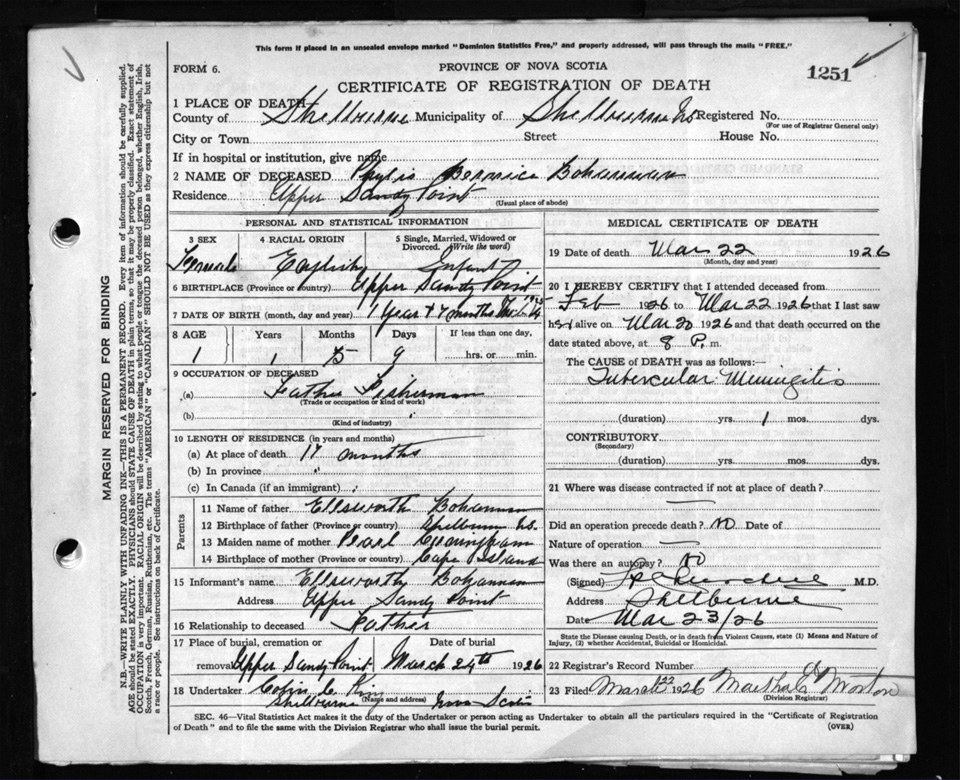 This form if placed in an unsealed envelope marked "Dominion Statistics Free," and properly addressed, will pass through the mails "FREE."
FORM 6.
PROVINCE OF NOVA SCOTIA
1251
CERTIFICATE OF REGISTRATION OF DEATH
1 PLACE OF DEATH
County of Shelburne Municipality of Shelburne Ns Registered No.
(For use of Registrar General only)
City or Town Street House No.
If in hospital or institution, give name
2 NAME OF DECEASED Phylis Bernice Bohannan
Residence Upper Sandy Point
(Usual place of abode)
PERSONAL AND STATISTICAL INFORMATION
3 SEX 4 RACIAL ORIGIN 5 Single, Married, Widowed or Divorced. (Write the word)
Female English Infant
6 BIRTHPLACE (Province or country) Upper Sandy Point
7 DATE OF BIRTH (month, day and year) 1 year & 4 months
8 AGE Years Months Days If less than one day,
1 1 5 9 hrs. or min.
9 OCCUPATION OF DECEASED
(a) Father Fisherman
(Trade or occupation or kind of work)
(b)
(Kind of industry)
10 LENGTH OF RESIDENCE (in years and months)
(a) At place of death 17 months
(b) In province "
(c) In Canada (if an immigrant)
Parents
11 Name of father Ellsworth Bohannan
12 Birthplace of father (Province or country) Shelburne Ns.
13 Maiden name of mother Pearl Cunningham
14 Birthplace of mother (Province or country) Cape Island
15 Informant's name Ellsworth Bohannan
Address Upper Sandy Point
16 Relationship to deceased Father
17 Place of burial, cremation or Date of burial
removal Upper Sandy Point March 24th 1926
18 Undertaker Colin C King
(Name and address)
Shelbourne Nova Scotia
MEDICAL CERTIFICATE OF DEATH
19 Date of death Mar 22 1926
(Month, day and year)
20 I HEREBY CERTIFY that I attended deceased from
Feb 1926 to Mar 22 1926 that I last saw
her alive on Mar 20 1926 and that death occurred on the
date stated above, at 8 P. m.
The CAUSE of DEATH was as follows:—
Tubercular Meningitis
(duration) yrs. 1 mos. dys.
CONTRIBUTORY
(Secondary)
(duration) yrs. mos. dys.
21 Where was disease contracted if not at place of death?
—
Did an operation precede death? No Date of
Nature of operation —
Was there an autopsy? No
(Signed) M.D.
Address Shelburne
Date Mar 23/26
State the Disease causing Death, or in death from Violent Causes, state (1) Means and Nature of
Injury, (2) whether Accidental, Suicidal or Homicidal.
22 Registrar's Record Number
23 Filed March 22 1926 Martha Morton
(Division Registrar)
SEC. 46—Vital Statistics Act makes it the duty of the Undertaker or person acting as Undertaker to obtain all the particulars required in the "Certificate of Registration
of Death" and to file the same with the Division Registrar who shall issue the burial permit.
(OVER)
MARGIN RESERVED FOR BINDING
N.B.—WRITE PLAINLY WITH UNFADING INK—THIS IS A PERMANENT RECORD. Every item of information should be carefully supplied.
AGE should be stated EXACTLY. PHYSICIANS should STATE CAUSE OF DEATH in plain terms, so that it may be properly classified. Exact statement of
OCCUPATION is very important. RACIAL ORIGIN will be described by stating to what people or tongue the deceased person belonged, whether English, Irish,
Scotch, French, German, Russian, Ruthenian, etc. The terms "AMERICAN" or "CANADIAN" SHOULD NOT BE USED as they express citizenship but not
a race or people. See instructions on back of Certificate.